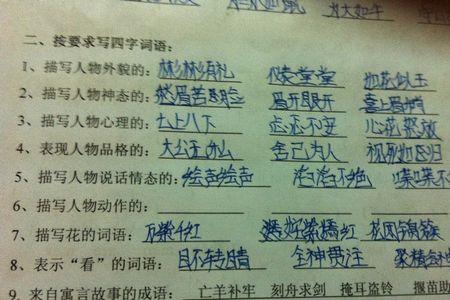 二、按要求写四字词语：
1、描写人物外貌的：彬彬有礼 仪表堂堂 如花似玉
2、描写人物神态的：愁眉苦脸 眉开眼开 喜上眉梢
3、描写人物心理的：七上八下 忐忑不安 心花怒放
4、表现人物品格的：大公无私 舍己为人 视死如归
5、描写人物说话情态的：绘声绘声 滔滔不绝
6、描写人物动作的：
7、描写花的词语：万紫千红 花团锦簇
8、表示“看”的词语：目不转睛 全神贯注 聚精会神
9、来自寓言故事的成语：亡羊补牢 刻舟求剑 掩耳盗铃 揠苗助